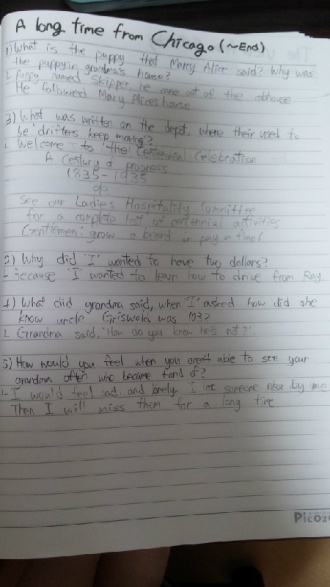 A long time from Chicago (~End)
1) What is the puppy that Mary Alice said? Why was
the puppy in grandma's house?
Puppy named Skipper, he came out of the
He followed Mary Alice's house
3) What was written on the dept. where their used to
be 'drifters keep moving'?
Welcome to the Centennial Celebration
A Century of progress
1835 - 1935
See our Ladies Hospitality Committee
for a complete list of centennial activities
Gentlemen: grow a beard or pay a fine!
2) Why did 'I' wanted to have two dollars?
- Because 'I wanted to learn how to drive from Ray.
4) What did grandma said, when 'I' asked how did she
know uncle Griswold was 103?
Grandma said, 'How do you know he's not?'
5) How would you feel when you aren't able to see your
grandma often who became fond of?
I would feel sad and lonely. I like someone near by me
Then I will miss them for a long time